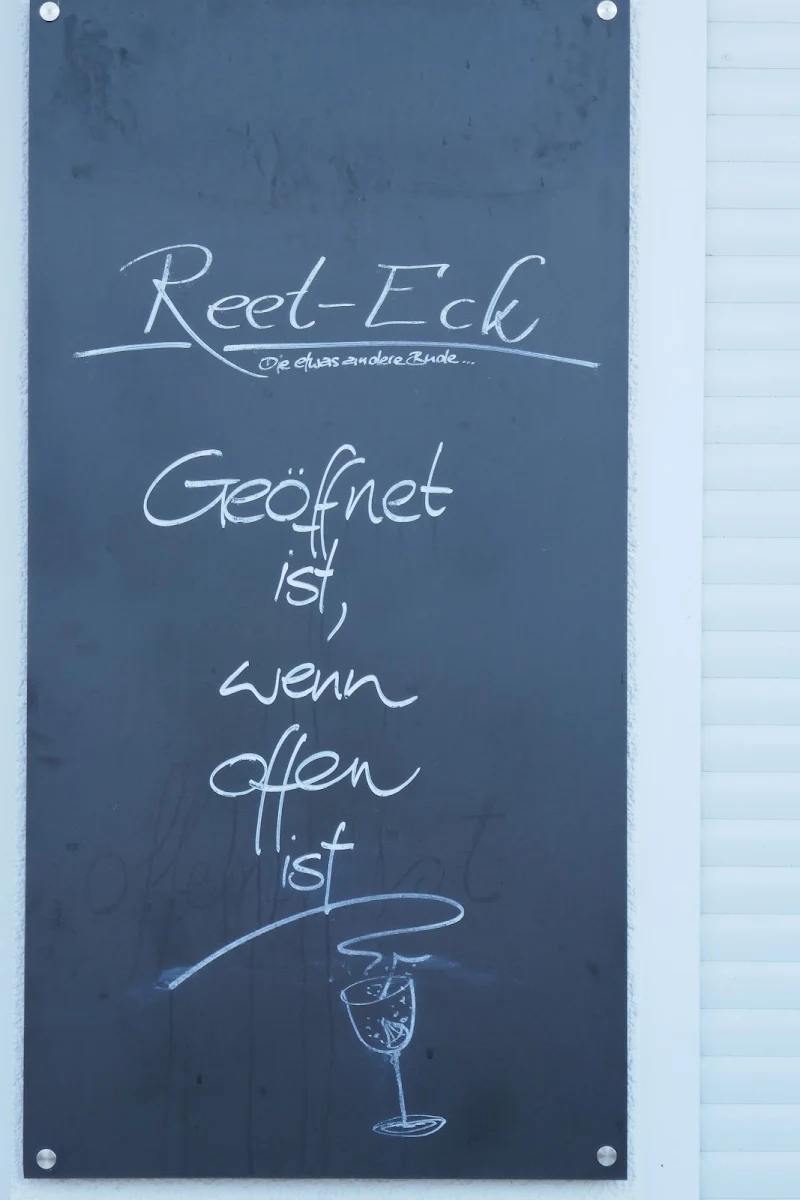 Reet-Eck
Die etwas andere Bude...
Geöffnet
ist,
wenn
offen
ist